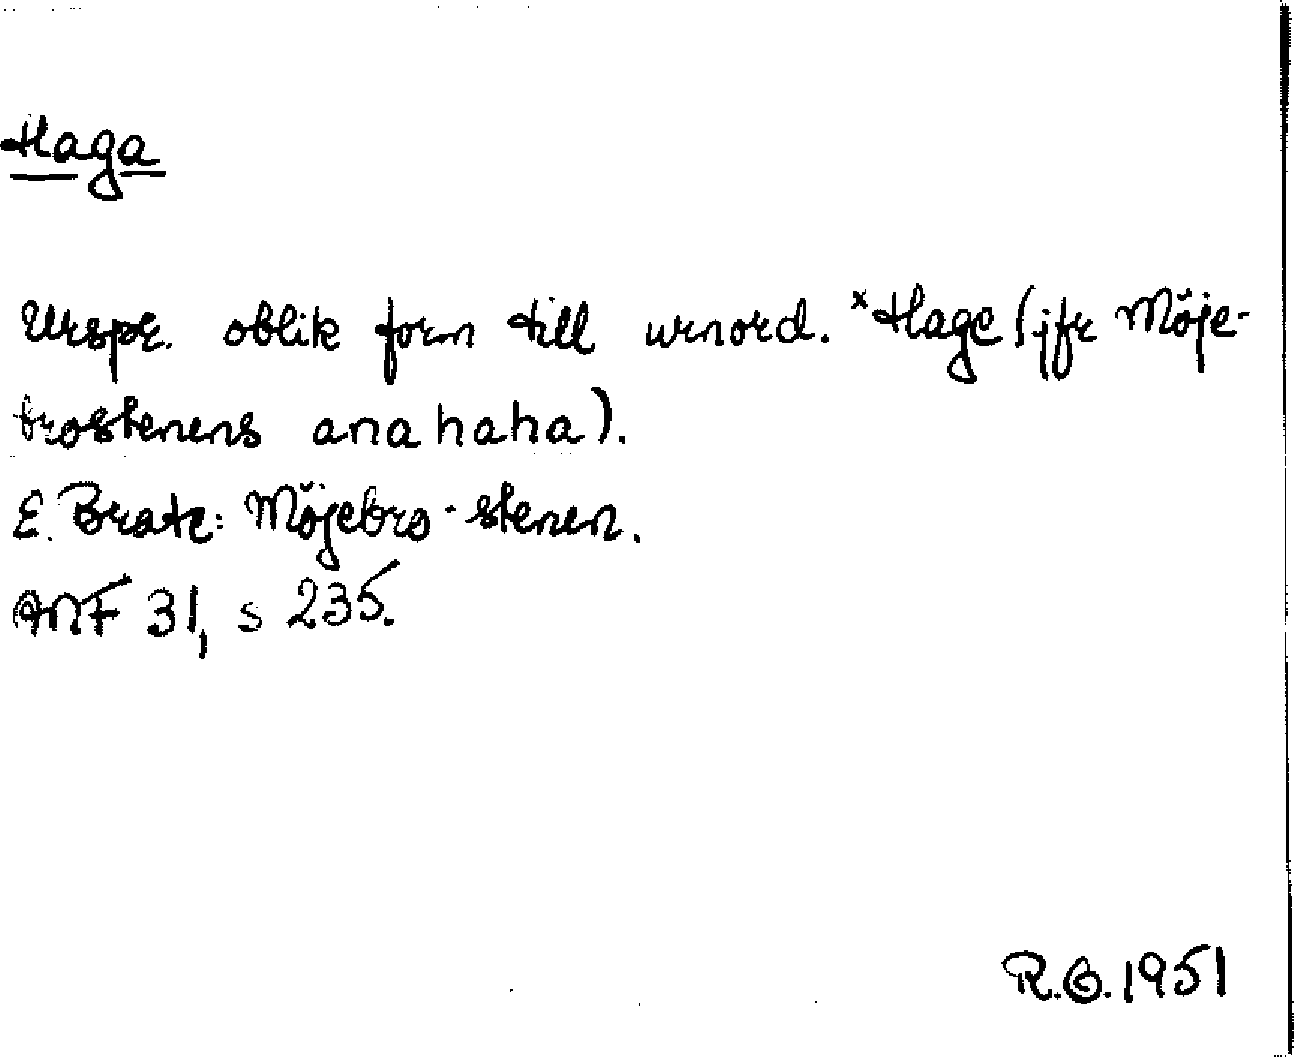 Haga
Urspr. oblik form till urnord. ˣHage (jfr Möje-
brostenens anahaha).
E. Brate: Möjebro-stenen.
ANF 31, s 235.
R.G. 1951